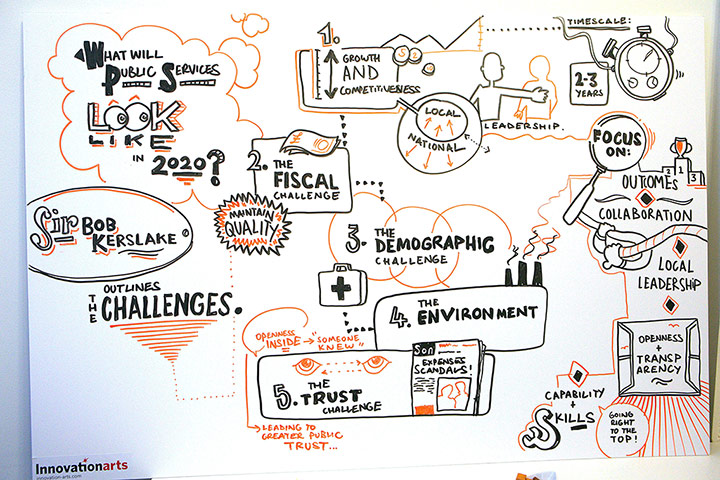 WHAT WILL
PUBLIC SERVICES
LOOK
LIKE
IN 2020?
Sir BOB
KERSLAKE
OUTLINES
THE CHALLENGES.
1. GROWTH
AND
COMPETITIVENESS
LOCAL
NATIONAL
LEADERSHIP.
TIMESCALE:
2-3
YEARS
2. THE
FISCAL
CHALLENGE
MAINTAIN
QUALITY!
3. THE
DEMOGRAPHIC
CHALLENGE
4. THE
ENVIRONMENT
OPENNESS
INSIDE → "SOMEONE
KNEW"
5. THE
TRUST
CHALLENGE
SON
EXPENSES
SCANDALS!
LEADING TO
GREATER PUBLIC
TRUST...
FOCUS
ON:
2 1 3
OUTCOMES
COLLABORATION
LOCAL
LEADERSHIP
OPENNESS
+
TRANSP
ARENCY
CAPABILITY
+
SKILLS
GOING
RIGHT
TO THE
TOP!
Innovationarts
innovation-arts.com